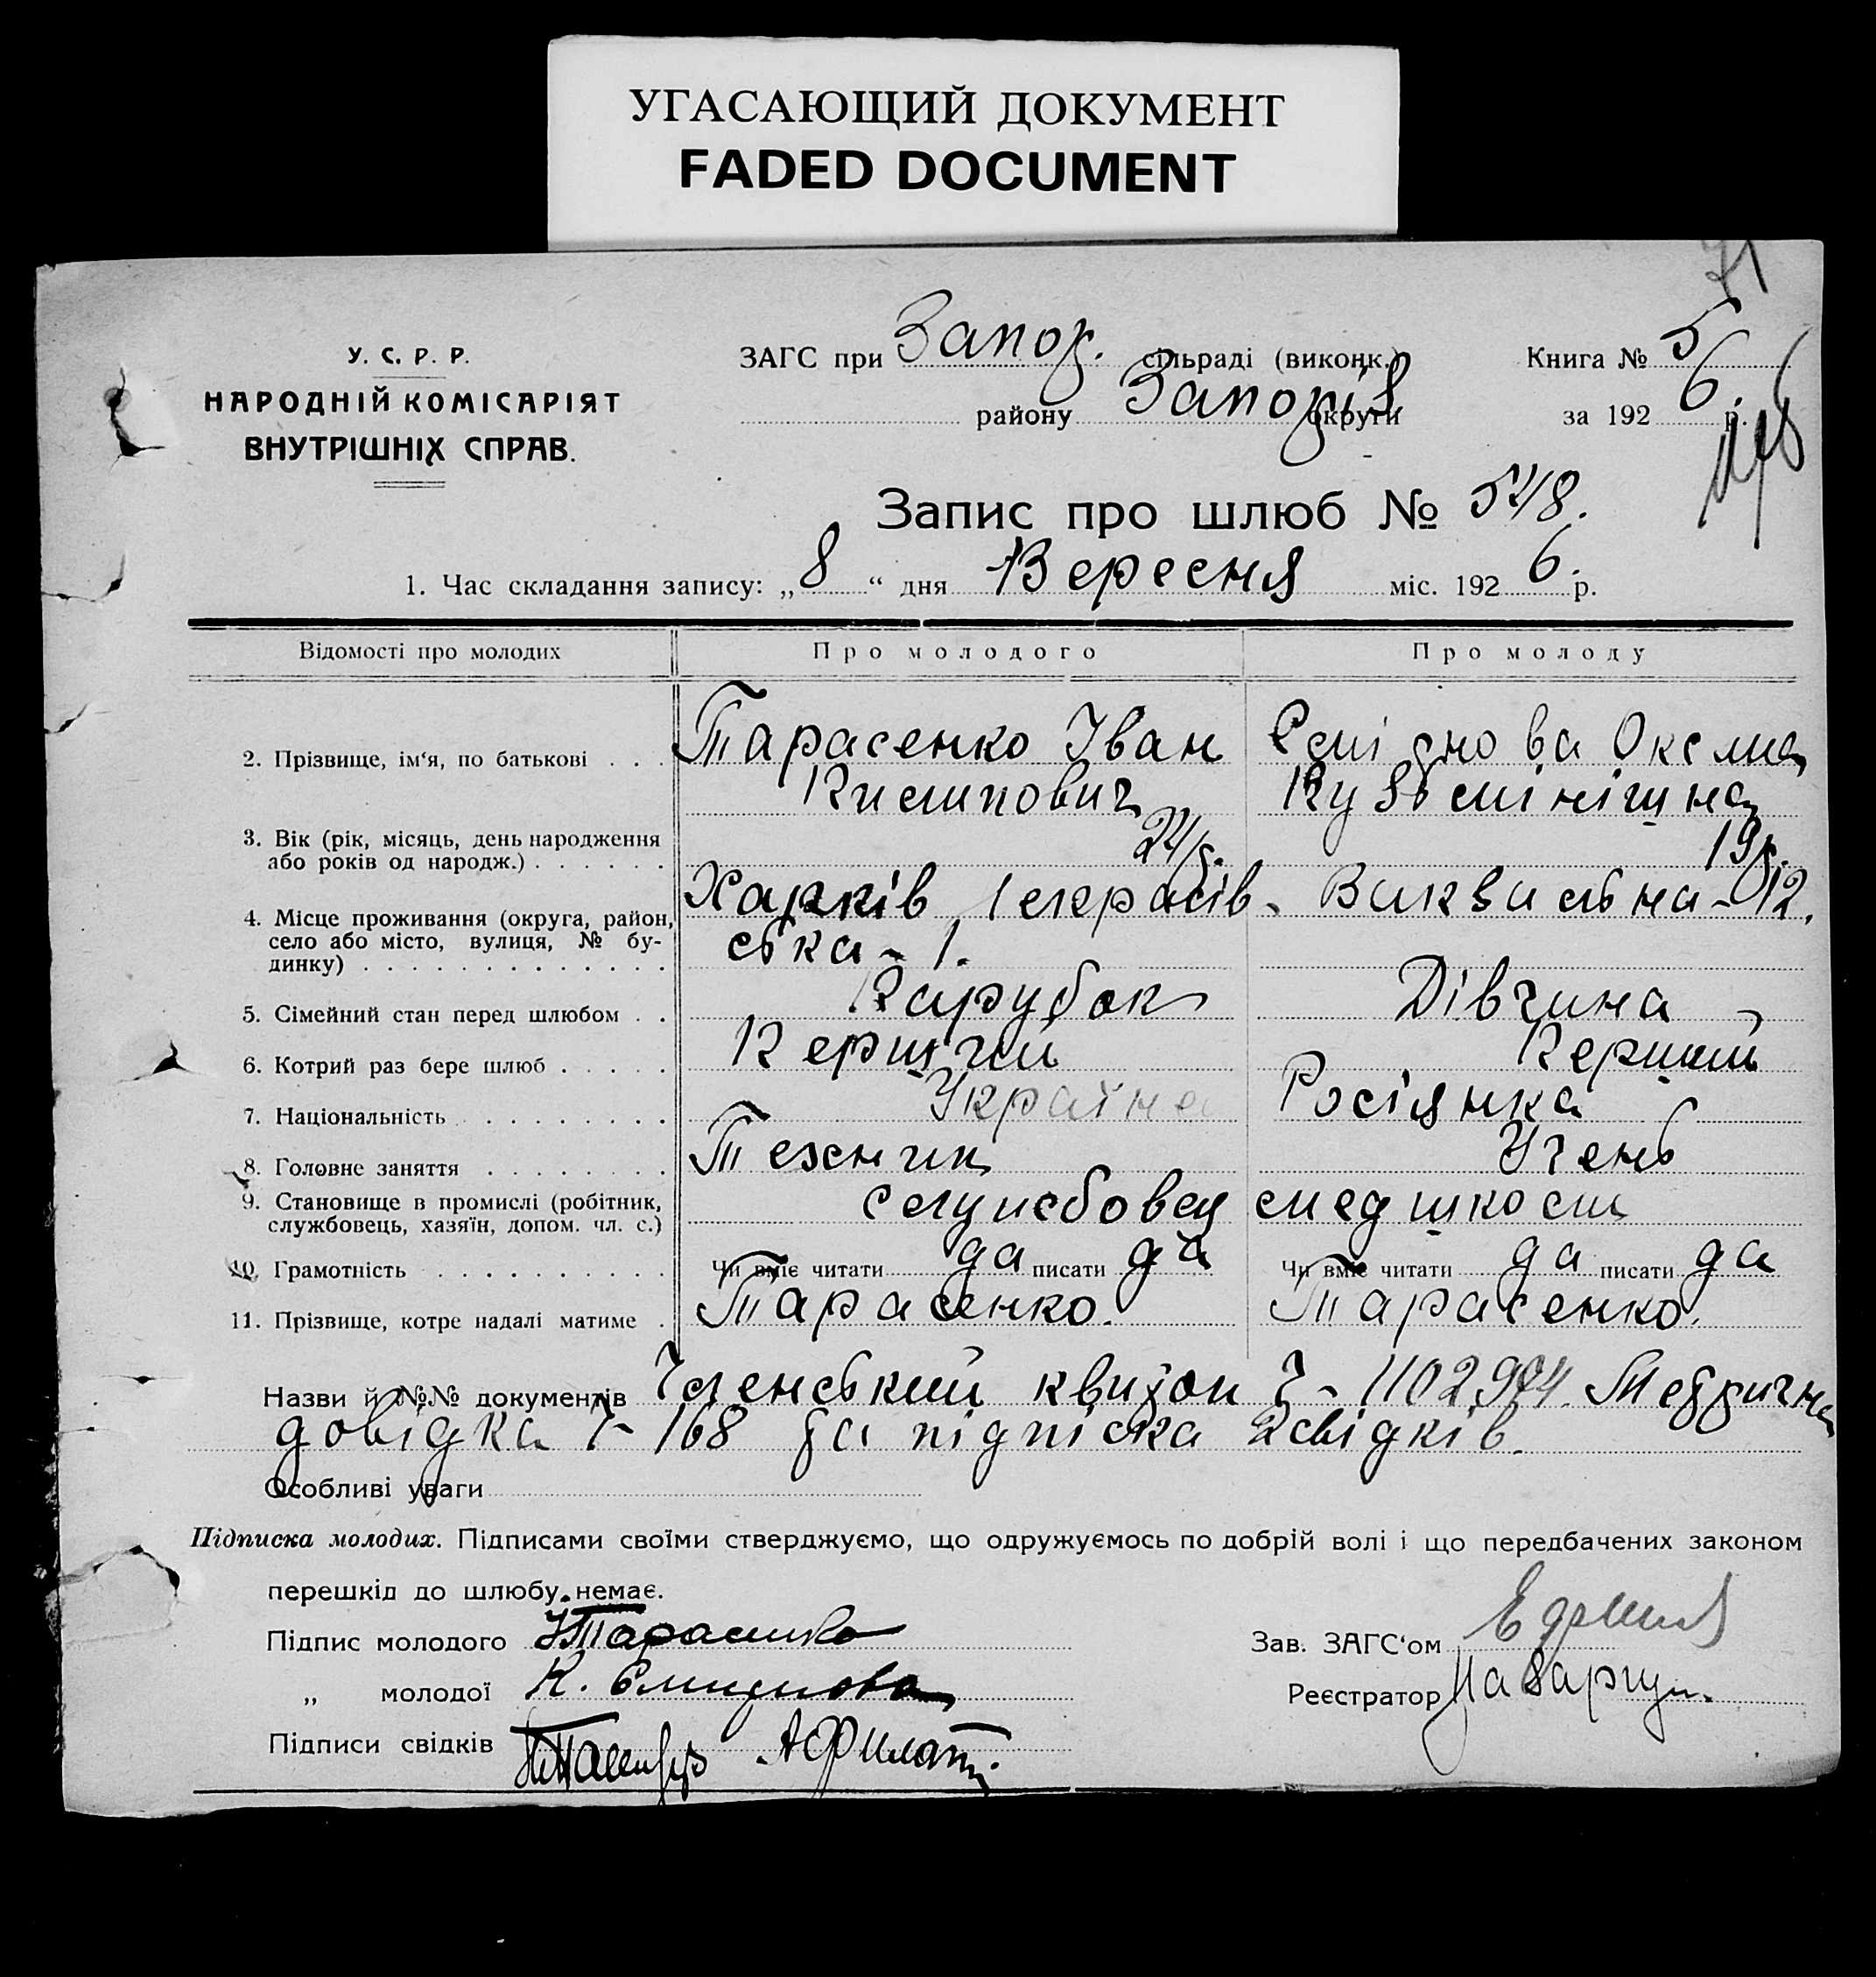 УГАСАЮЩИЙ ДОКУМЕНТ
FADED DOCUMENT
71
У. С. Р. Р.
НАРОДНІЙ КОМІСАРІЯТ
ВНУТРІШНІХ СПРАВ.
ЗАГС при Запор. сільраді (виконк.) Книга № 5
району Запоріз округи за 1926 р.
Запис про шлюб № 548.
1. Час складання запису: „8“ дня Вересня міс. 1926. р.
Відомості про молодих Про молодого Про молоду
2. Прізвище, ім‘я, по батькові Тарасенко Іван
Оксана
3. Вік (рік, місяць, день народження або років од народж.) 24р. 19р.
4. Місце проживання (округа, район, село або місто, вулиця, № будинку) Харків
ська - 1. Вакзальна - 12.
5. Сімейний стан перед шлюбом Парубок Дівчина
6. Котрий раз бере шлюб Перший Перший
7. Національність Українец Росіянка
8. Головне заняття Техник Учень
9. Становище в промислі (робітник, службовець, хазяїн, допом. чл. с.) службовец медшколи
10. Грамотність Чи вміє читати да писати да Чи вміє читати да писати да
11. Прізвище, котре надалі матиме Тарасенко. Тарасенко.
Назви й №№ документів Членський квиток Ч - 1102974. Медична
довідка Ч - 168 та підпіска 2 свідків.
Особливі уваги
Підписка молодих. Підписами своїми стверджуємо, що одружуємось по добрій волі і що передбачених законом
перешкід до шлюбу немає.
Підпис молодого И Тарасенко Зав. ЗАГС‘ом
„ молодої К. Реєстратор
Підписи свідків